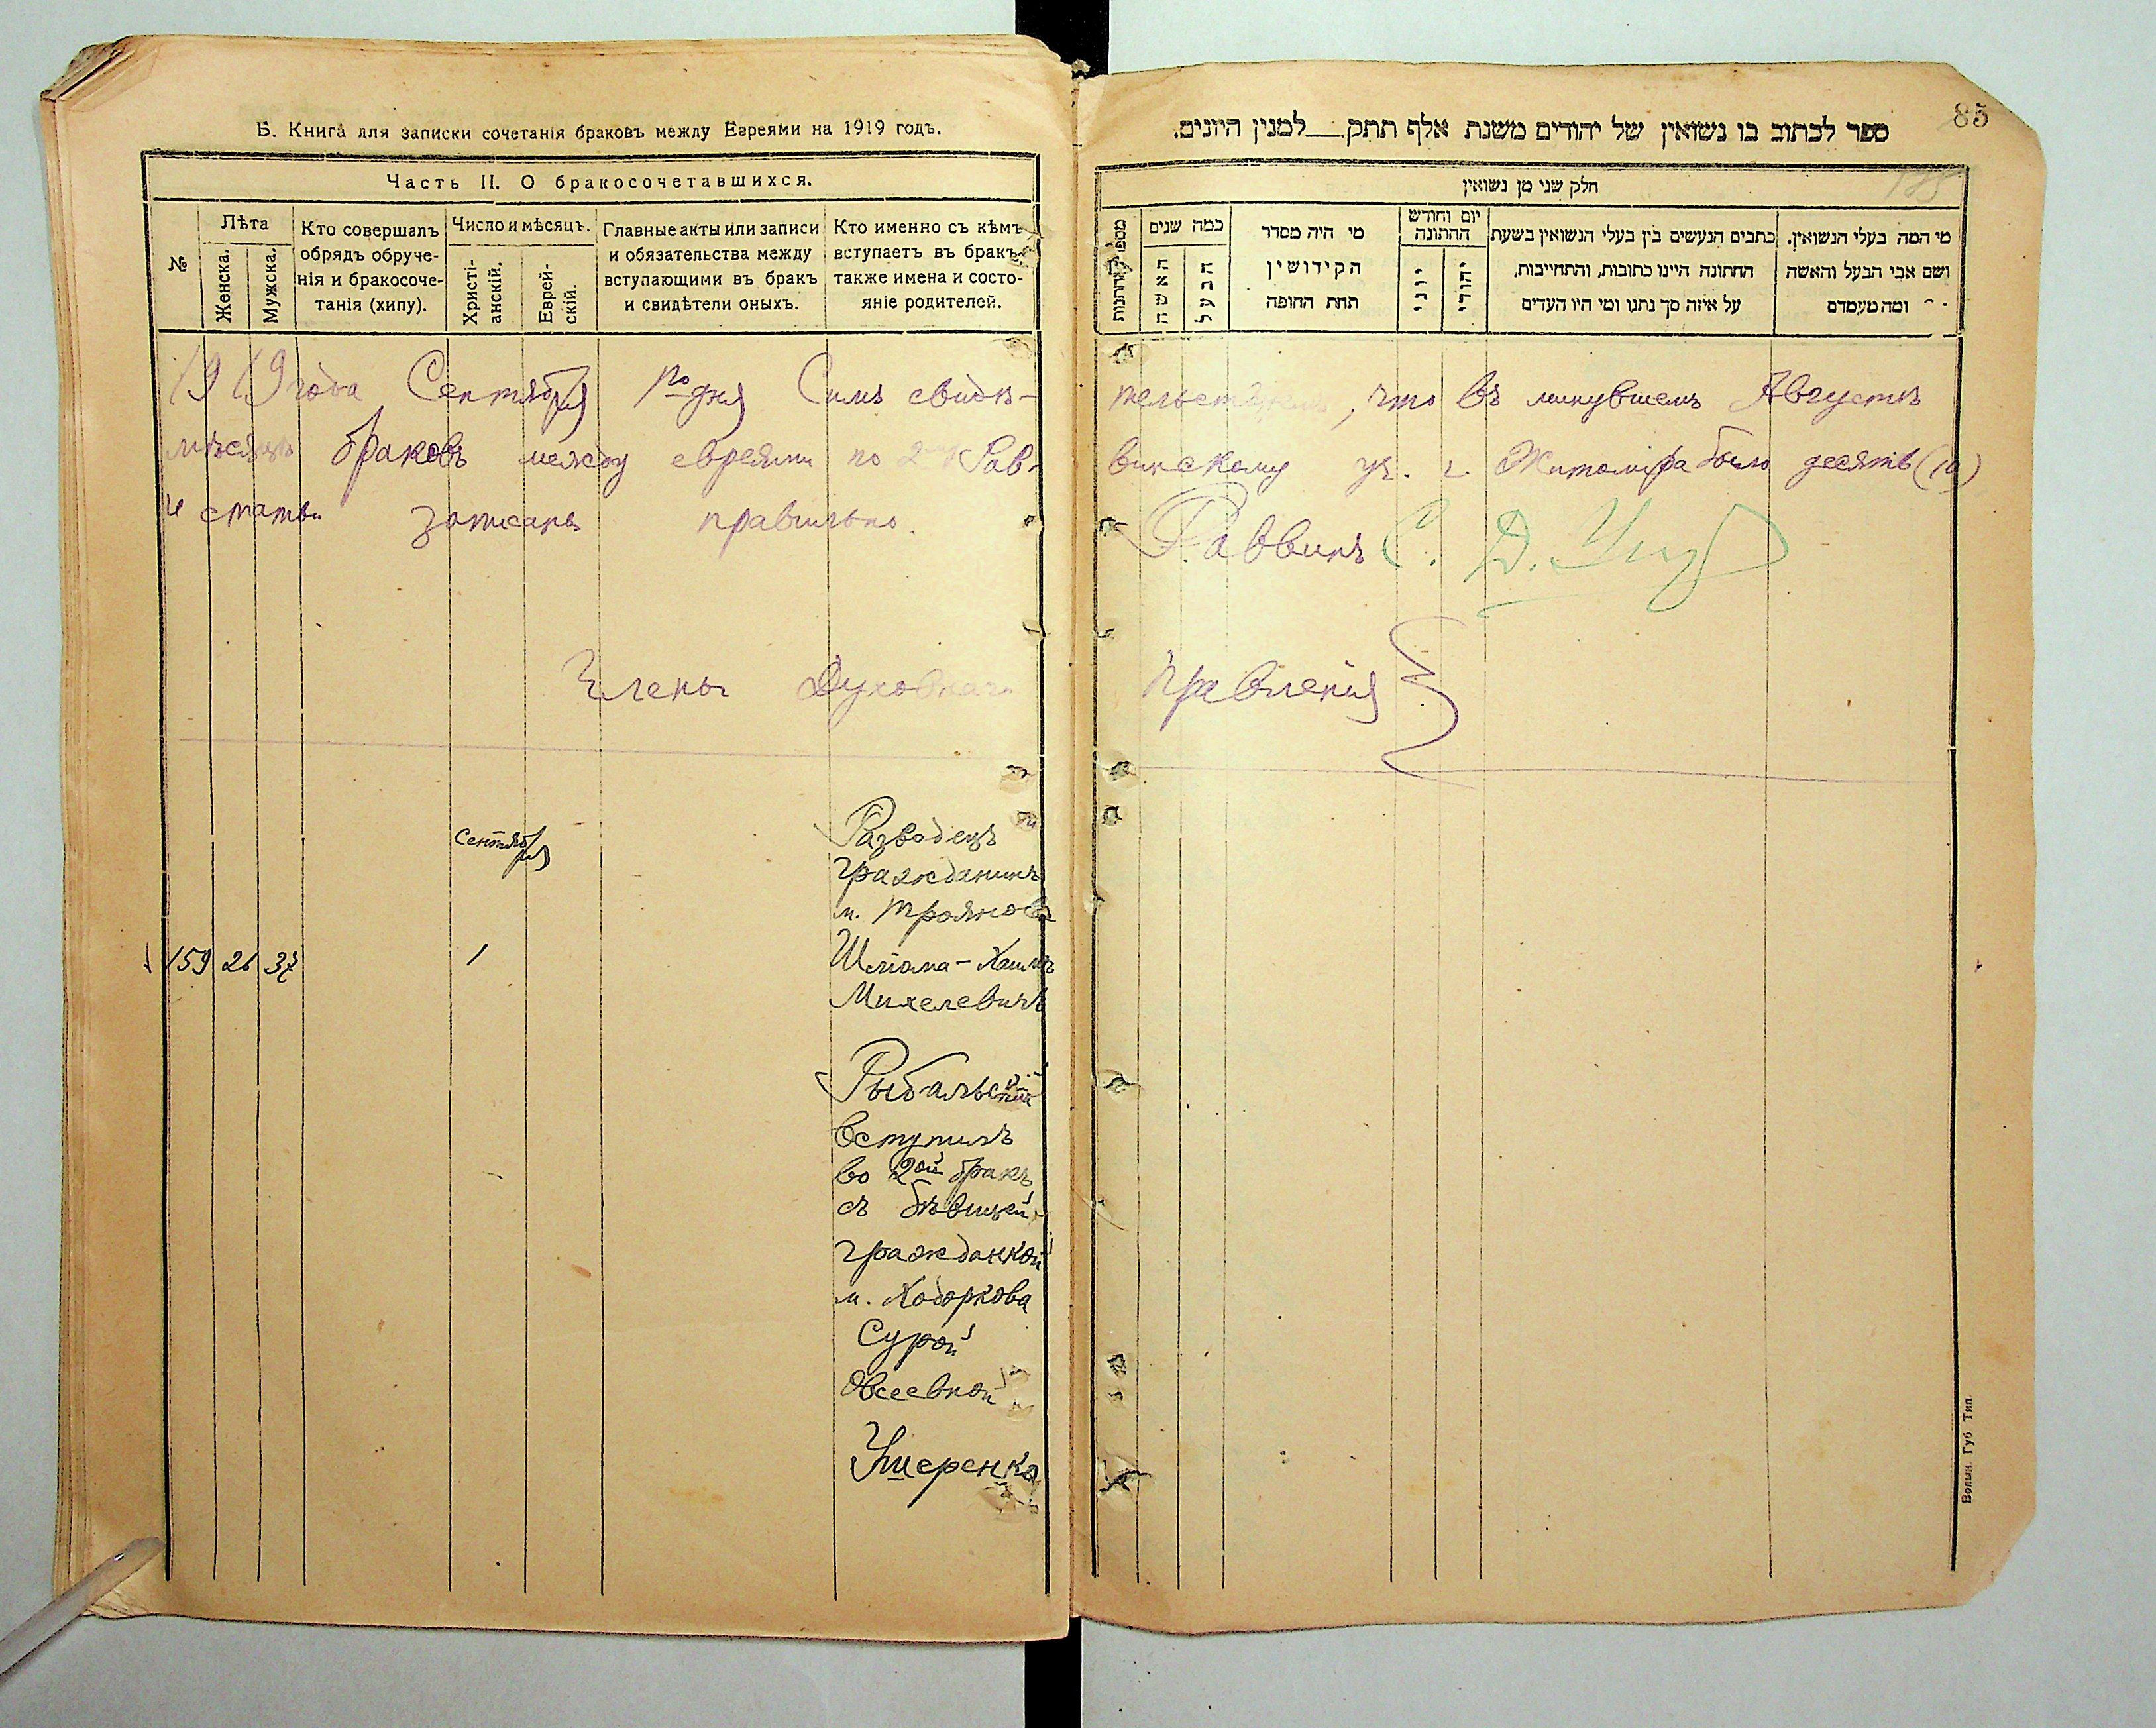 Б. Книга для записки сочетанія браковъ между Евреями на 1919 годъ.
Часть II. О бракосочетавшихся.
№
Лѣта
Женска.
Мужска.
Кто совершалъ
обрядъ обруче-
нія и бракосоче-
танія (хипу).
Число и мѣсяцъ.
Христі-
анскій.
Еврей-
скій.
Главные акты или записи
и обязательства между
вступающими въ бракъ
и свидѣтели оныхъ.
Кто именно съ кѣмъ
вступаетъ въ бракъ,
также имена и состо-
яніе родителей.
85
ספר לכתוב בו נשואין של יהודים משנת אלף תתק__למנין היונים.
חלק שני מן נשואין
מי המה בעלי הנשואין.
ושם אבי הבעל והאשה
ומה מעמדם
כתבים הנעשים בין בעלי הנשואין בשעת
החתונה היינו כתובות, והתחייבות,
על איזה סך נתנו ומי היו העדים
יום וחודש
החתונה
יהודי
יוני
מי היה מסדר
הקידושין
תחת החופה
כמה שנים
הבעל
האשה
1919 года Сентября 1го дня Симъ свидѣ-тельствуемъ, что въ минувшемъ Августѣ
мѣсяцѣ браковъ между евреями по 2му Рав-винскому уч. г. Житоміра было десять (10)
и статьи записаны правильно. Раввинъ С. Д.
Члены Духовнаго Правленія
Сентября
159 26 37 1
Разводецъ
гражданинъ
м. Трояновъ
Шлёма-Хаимъ
Михелевичъ
Рыбальскій
вступилъ
во 2ой бракъ
съ дѣвицей
гражданкой
м. Ходоркова
Сурой
Овсеевной
Ушеренко
Волын. Губ Тип.